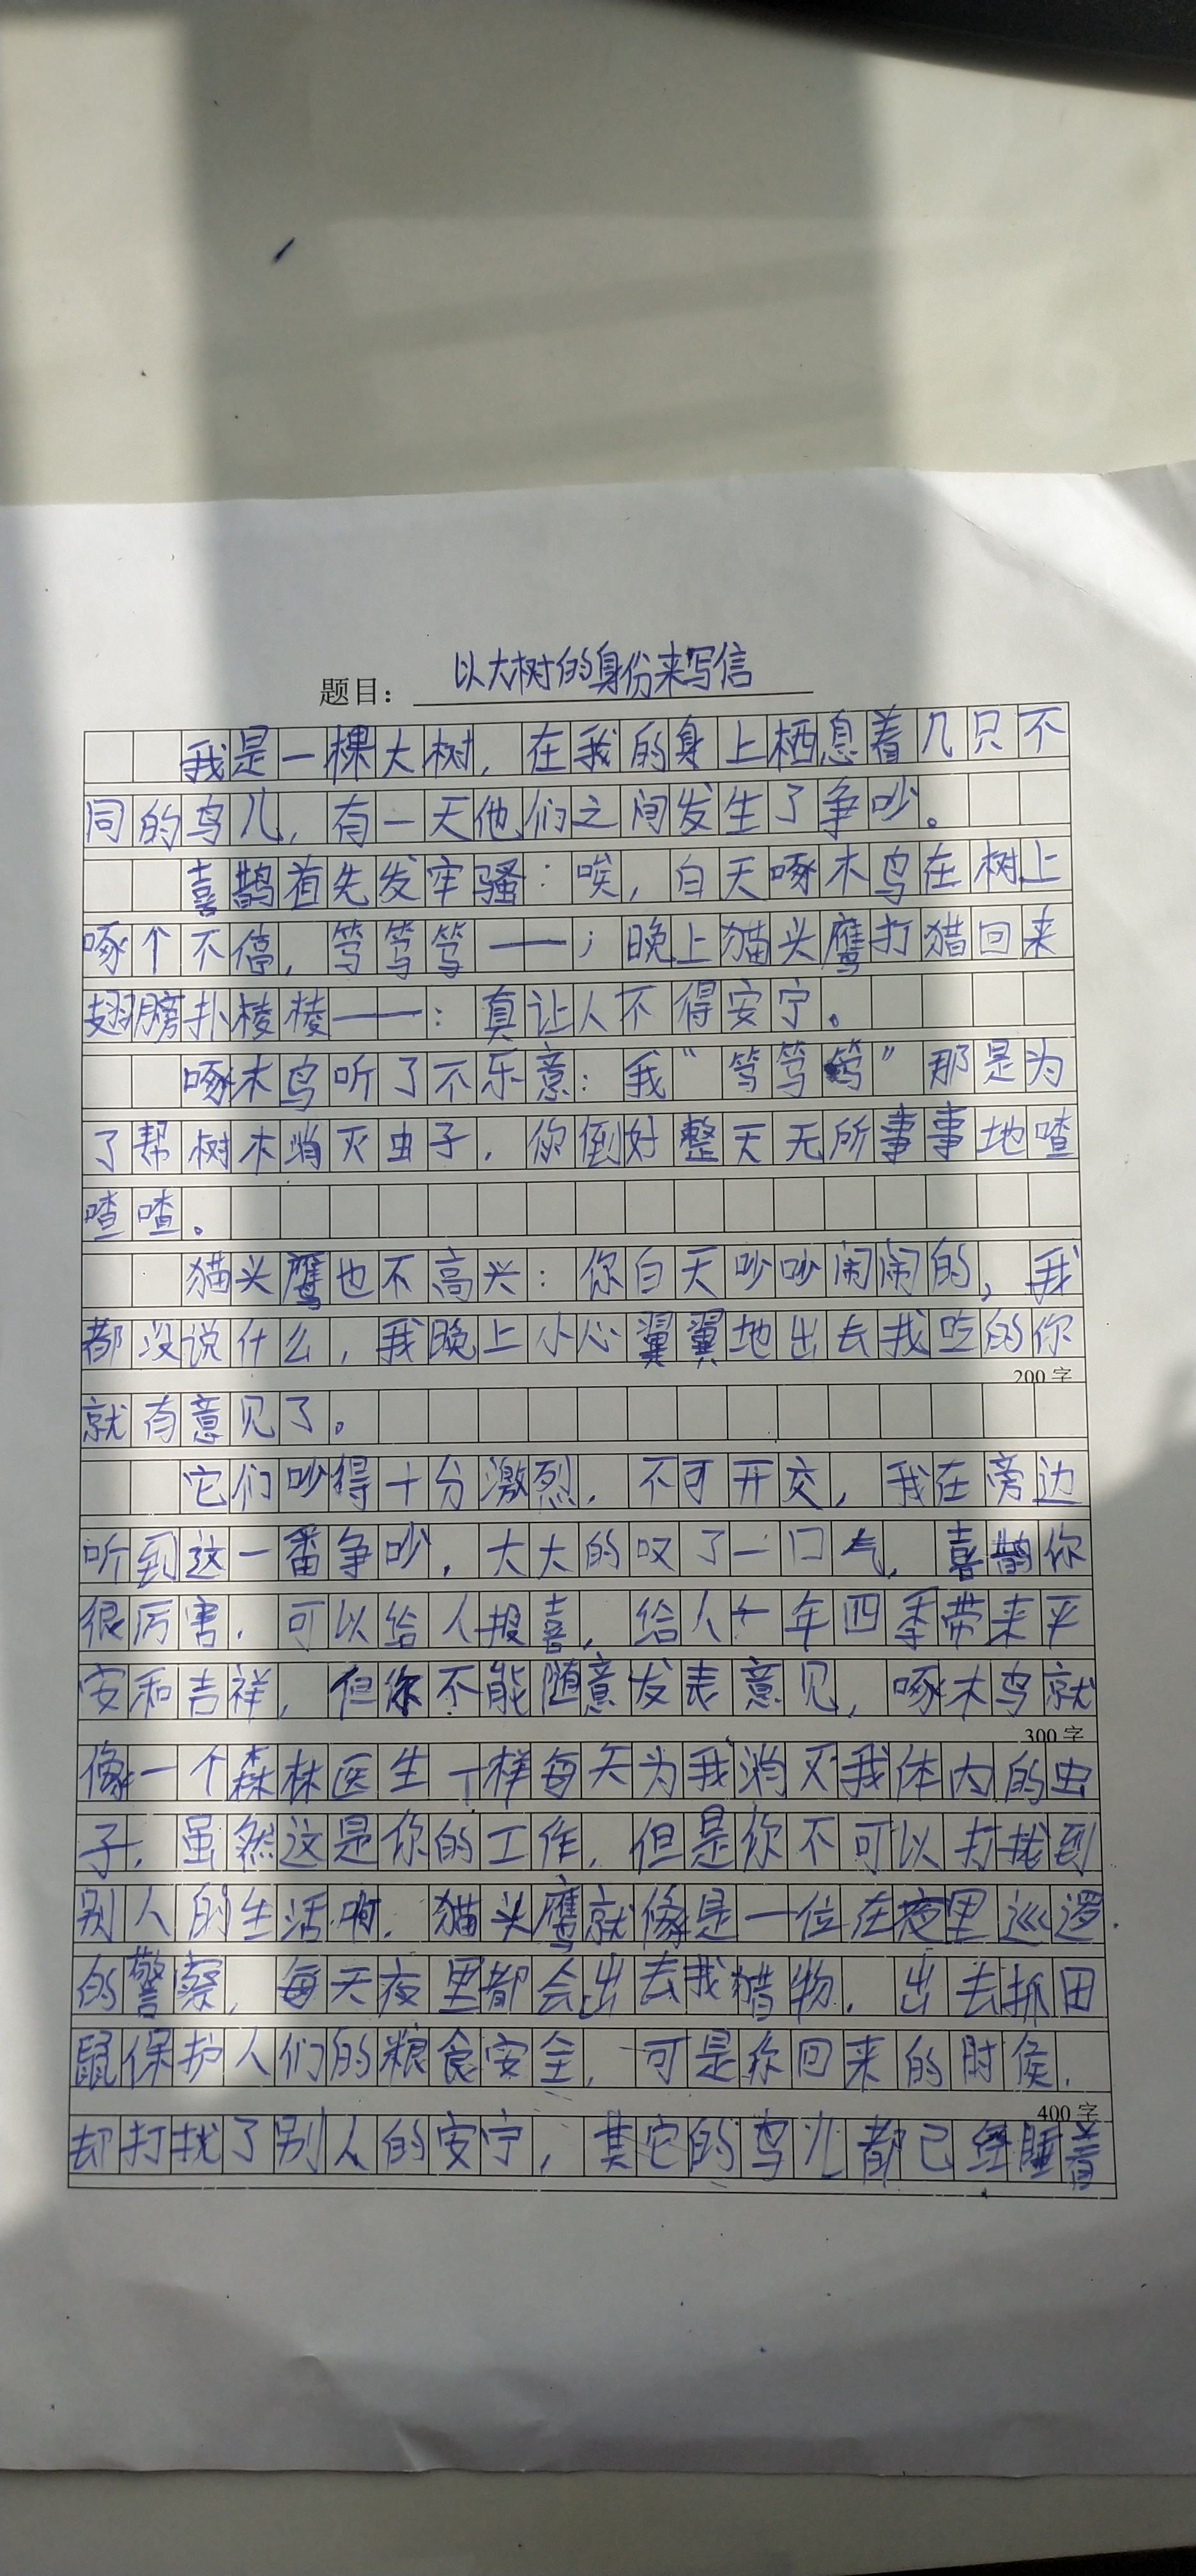 题目：以大树的身份来写信
我是一棵大树，在我的身上栖息着几只不
同的鸟儿，有一天他们之间发生了争吵。
喜鹊首先发牢骚：唉，白天啄木鸟在树上
啄个不停，笃笃笃——；晚上猫头鹰打猎回来
翅膀扑棱棱——：真让人不得安宁。
啄木鸟听了不乐意：我“笃笃笃”那是为
了帮树木消灭虫子，你倒好整天无所事事地喳
喳喳。
猫头鹰也不高兴：你白天吵吵闹闹的，我
都没说什么，我晚上小心翼翼地出去找吃的你
200字
就有意见了。
它们吵得十分激烈，不可开交，我在旁边
听到这一番争吵，大大的叹了一口气，喜鹊你
很厉害，可以给人报喜，给人一年四季带来平
安和吉祥，但你不能随意发表意见，啄木鸟就
300字
像一个森林医生一样每天为我消灭我体内的虫
子，虽然这是你的工作，但是你不可以打扰到
别人的生活啊，猫头鹰就像是一位在夜里巡逻
的警察，每天夜里都会出去找猎物，出去抓田
鼠保护人们的粮食安全，可是你回来的时侯，
400字
却打扰了别人的安宁，其它的鸟儿都已经睡着